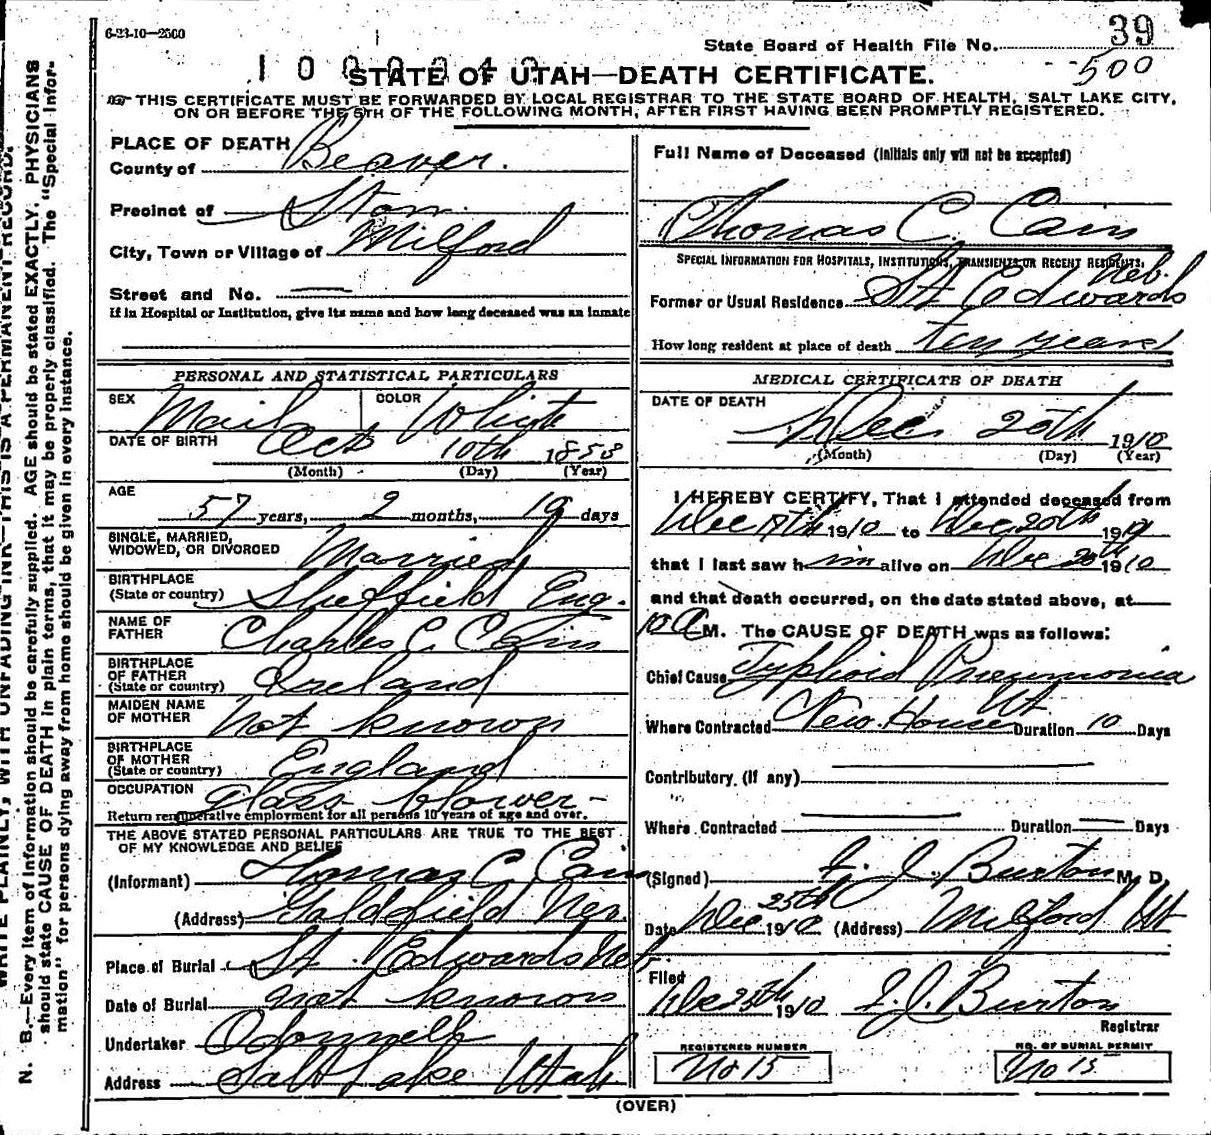 6-23-10—2500
State Board of Health File No. 39
500
STATE OF UTAH—DEATH CERTIFICATE.
THIS CERTIFICATE MUST BE FORWARDED BY LOCAL REGISTRAR TO THE STATE BOARD OF HEALTH, SALT LAKE CITY,
ON OR BEFORE THE 5TH OF THE FOLLOWING MONTH, AFTER FIRST HAVING BEEN PROMPTLY REGISTERED.
WRITE PLAINLY, WITH UNFADING INK—THIS IS A PERMANENT RECORD.
N. B.—Every item of information should be carefully supplied. AGE should be stated EXACTLY. PHYSICIANS
should state CAUSE OF DEATH in plain terms, that it may be properly classified. The "Special Infor-
mation" for persons dying away from home should be given in every instance.
PLACE OF DEATH
County of Beaver.
Precinct of Star
City, Town or Village of Milford
Street and No. —
If in Hospital or Institution, give its name and how long deceased was an inmate
PERSONAL AND STATISTICAL PARTICULARS
SEX Mail COLOR White
DATE OF BIRTH Oct 10th 1853
(Month) (Day) (Year)
AGE
57 years, 2 months, 19 days
SINGLE, MARRIED,
WIDOWED, OR DIVORCED Married
BIRTHPLACE
(State or country) Sheffield Eng.
NAME OF
FATHER Charles C. Cain
BIRTHPLACE
OF FATHER
(State or country) Ireland
MAIDEN NAME
OF MOTHER Not known
BIRTHPLACE
OF MOTHER
(State or country) England
OCCUPATION Glass blower-
Return remunerative employment for all persons 10 years of age and over.
THE ABOVE STATED PERSONAL PARTICULARS ARE TRUE TO THE BEST
OF MY KNOWLEDGE AND BELIEF
(Informant) Thomas C. Cain
(Address) Goldfield Nev.
Place of Burial St. Edwards Neb.
Date of Burial not known
Undertaker Odonnell
Address Salt Lake Utah
Full Name of Deceased (Initials only will not be accepted)
Thomas C. Cain
SPECIAL INFORMATION FOR HOSPITALS, INSTITUTIONS, TRANSIENTS OR RECENT RESIDENTS.
Neb.
Former or Usual Residence St Edwards
How long resident at place of death ten years
MEDICAL CERTIFICATE OF DEATH
DATE OF DEATH
Dec. 20th 1910
(Month) (Day) (Year)
I HEREBY CERTIFY, That I attended deceased from
Dec 1910 to Dec. 20th 1910
that I last saw him alive on Dec 20th 1910
and that death occurred, on the date stated above, at
10 A M. The CAUSE OF DEATH was as follows:
Chief Cause Typhoid Pneumonia
Where Contracted New House Ut Duration 10 Days
Contributory (if any) —
Where Contracted — Duration — Days
(Signed) F. J. Burton M. D.
Date Dec 25th 1910 (Address) Milford Ut
Filed
Dec 25th 1910 F. J. Burton
Registrar
REGISTERED NUMBER
No 15
NO. OF BURIAL PERMIT
No 15
(OVER)